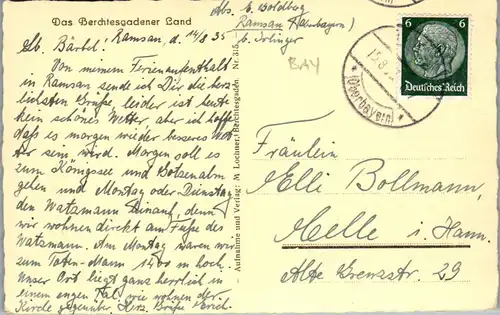 Das Berchtesgadener Land
Abs. E. Boldbog
Ramsau (Oberbayern)
b. Irlinger
BAY
Ramsau, d. 14/8 35
Lb. Bärbel!
Von meinem Ferienaufenthalt
in Ramsau sende ich Dir die herz
lichsten Grüße, leider ist heute
kein schönes Wetter, aber ich hoffe
daß es morgen wieder besseres Wet
ter sein wird. Morgen soll es
zum Königssee und Obersalm
gehen und Montag oder Dienstag
den Watzmann hinauf, denn
wir wohnen direkt am Fuße des
Watzmann. Am Montag waren wir
zum Toten-Mann 1400 m hoch.
Unser Ort liegt ganz herrlich in
einem engen Tal, wir wohnen der
Kirche gegenüber. Herz. Grüße Erich.
Aufnahme und Verlag: M Lochner, Berchtesgaden Nr. 315
6 6
Deutsches Reich
(Oberbayern)
Fräulein
Elli Bollmann,
Melle i. Hann.
Alte Grenzstr. 29